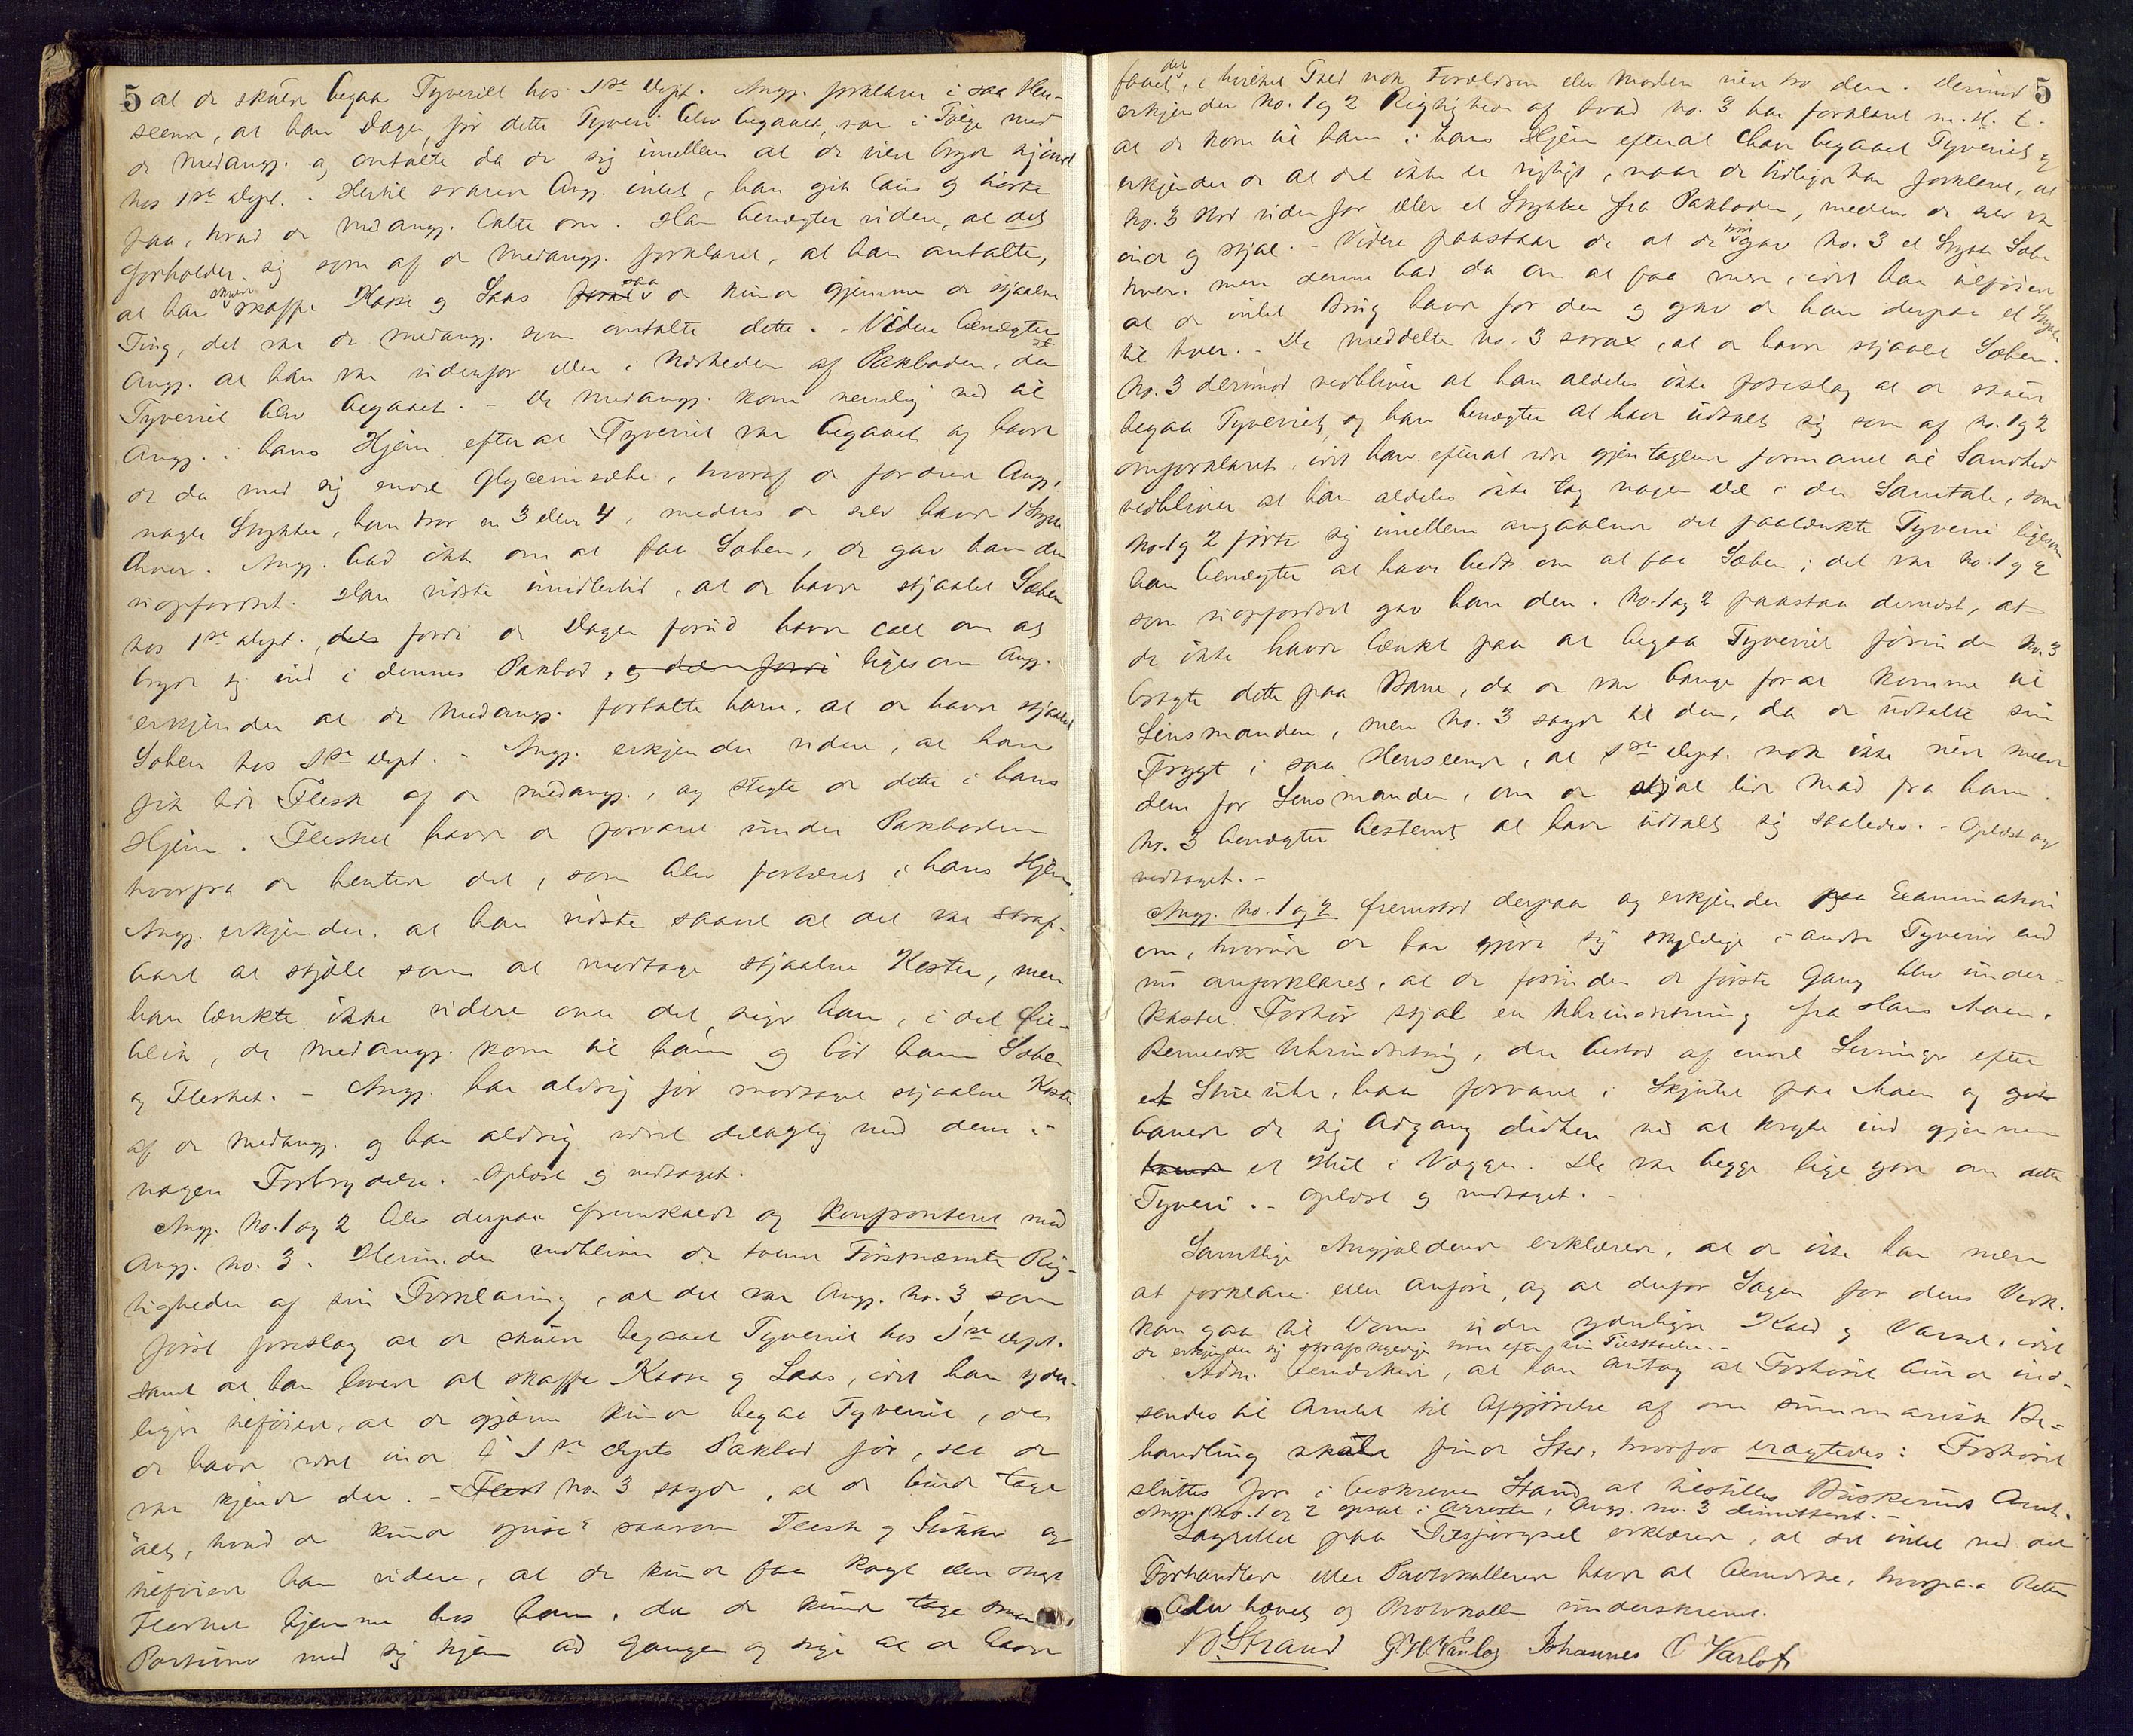 5 at de skulde begaa Tyveriet hos 1ste Dept. Angj. forklarer i saa Hen-
seende, at han Dagen før dette Tyveri blev begaaet, var i Følge med
de medangj. og omtalte da de sig imellem at de vilde bryde
hos 1ste Dept. Hertil svarede Angj. intet, han gik taus og hørte
paa, hvad de medangj. talte om. Han benægter videre, at det
forholder sig som af de medangj. forklaret, at han omtalte,
at han skulde skaffe Kasse og Laas saa de kunde gjemme de stjaalne
Ting, det var de medangj. som omtalte dette. - Videre benægter
Angj. at han var udenfor eller i Nærheden af Pakboden, da
Tyveriet blev begaaet. - De medangj. kom nemlig ned til
Angj. i hans Hjem efter at Tyveriet var begaaet og havde
de da med sig endel Glycerinsæbe, hvoraf de forærede Angj.
nogle Stykker, han tror en 3 eller 4, medens de selv havde 1 Stykke
hver. Angj. bad ikke om at faa Sæben, de gav ham den
uopfordret. Han vidste imidlertid, at de havde stjaalet Sæben
hos 1ste Dept., fordi de Dagen forud havde talt om at
bryde sig ind i dennes Pakbod, ligesom Angj.
erkjender at de medangj. fortalte ham, at de havde stjaalet
Sæben hos 1ste Dept. - Angj. erkjender videre, at han
fik lidt Flesk af de medangj., og stegte de dette i hans
Hjem. Flesket havde de forvaret under Pakboden
hvorfra de hentede det, som blev fortæret i hans Hjem.
Angj. erkjender, at han vidste saavel at det var straf-
bart at stjæle som at modtage stjaalne Koster, men
han tænkte ikke videre over det, siger han, i det Øie-
blik, de medangj. kom til ham og bød ham Sæben
og Flesket. - Angj. har aldrig før modtaget stjaalne Koster
af de medangj. og har aldrig været delagtig med dem i
nogen Forbrydelse. - Oplæst og vedtaget.
Angj. No. 1 og 2 blev derpaa fremkaldt og konfronteret med
Angj. No. 3. Herunder vedbliver de tvende Førstnævnte Rig-
tigheden af sin Forklaring, at det var Angj. No. 3, som
først foreslog at de skulde begaaet Tyveriet hos 1ste Dept.
samt at han lovede at skaffe Kasse og Laas, idet han yder-
ligere tilføiede, at de gjerne kunde begaa Tyveriet, da
de havde været inde i 1ste Depts Pakbod før, saa de
var kjendt der. - No. 3 sagde, at de burde tage
"alt, hvad de kunde spise" saasom Flesk og Sukker og
tilføiede han videre, at de kunde faa kogt eller stegt
Flesket hjemme hos ham, da de kunde tage smaa
Portioner med sig hjem ad Gangen og sige at de havde
5
faaet det, i hvilket Fald nok Forældrene eller Moderen vilde tro dem. Derimod
erkjender No. 1 og 2 Rigtigheden af hvad No. 3 har forklaret m. H. t.
at de kom til ham i hans Hjem efterat have begaaet Tyveriet og
erkjender de at det ikke er rigtigt, naar de tidligere har forklaret, at
No. 3 stod udenfor eller et Stykke fra Pakboden, medens de selv var
inde og stjal. - Videre paastaar de at de gav No. 3 et Stykke Sæbe
hver, men denne bad da om at faa mere, idet han tilføiede
at de intet Brug havde for den og gav de ham derpaa et Stykke
til hver. - De meddelte No. 3 strax, at de havde stjaalet Sæben.
No. 3 derimod vedbliver at han aldeles ikke foreslog at de skulde
begaa Tyveriet, og han benægter at have udtalt sig som af No. 1 og 2
omforklaret, idet han efterat være gjentagende formanet til Sandhed
vedbliver at han aldeles ikke tog nogen Del i den Samtale, som
No. 1 og 2 førte sig imellem angaaende det paatænkte Tyveri ligesom
han benægter at have bedt om at faa Sæben; det var No. 1 og 2
som uopfordret gav ham den. No. 1 og 2 paastaa dernæst, at
de ikke havde tænkt paa at begaa Tyveriet førinden No. 3
bragte dette paa Bane, da de var bange for at komme til
Lensmanden, men No. 3 sagde til dem, da de udtalte sin
Frygt i saa Henseende, at 1ste Dept. nok ikke vilde melde
dem for Lensmanden, om de stjal lidt Mad fra ham.
No. 3 benægter bestemt at have udtalt sig saaledes. - Oplæst og
vedtaget. -
Angj. No. 1 og 2 fremstod derpaa og erkjender paa Examination
om, hvorvidt de har gjort sig skyldige i andre Tyverier end
nu omforklaret, at de forinden de første Gang blev under-
kastet Forhør stjal en Uhrindretning fra Hans Moen.
Bemeldte Uhrindretning, der bestod af endel Levninger efter
et Stueuhr, var forvaret i Skjulet paa Moen og
banede de sig Adgang didhen ved at krybe ind gjennem
et Hul i Væggen. De var begge lige gode om dette
Tyveri. - Oplæst og vedtaget. -
Samtlige Angjældende erklærede, at de ikke har mere
at forklare eller anføre, og at derfor Sagen for deres Vedk.
kan gaa til Doms uden yderligere Kald og Varsel, idet
de erkjender sig strafskyldige hver efter sin Tilstaaelse. -
Adm. bemærkede, at han antog at Forhøret burde ind-
sendes til Amtet til Afgjørelse af om summarisk Be-
handling skulde finde Sted, hvorfor eragtedes: Forhøret
sluttes for i beskreven Stand at tilstilles Buskeruds Amt.
Angj. No. 1 og 2 opsat i Arresten, Angj. No. 3 dimitteret. -
Lagrettet paa Tilspørgsel erklærede, at det intet ved det
Forhandlede eller Protokollerede havde at bemærke, hvorpaa Retten
blev hævet og Protokollen underskrevet.
B. Strand G. H. Varlo Johannes O Varlo